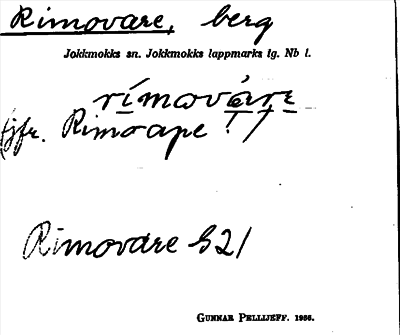 Rimovare, berg
Jokkmokks sn. Jokkmokks lappmarks tg. Nb l.
rímovárε
(jfr. Rimoape !)
Rimovare S21
GUNNAR PELLIJEFF. 1956.